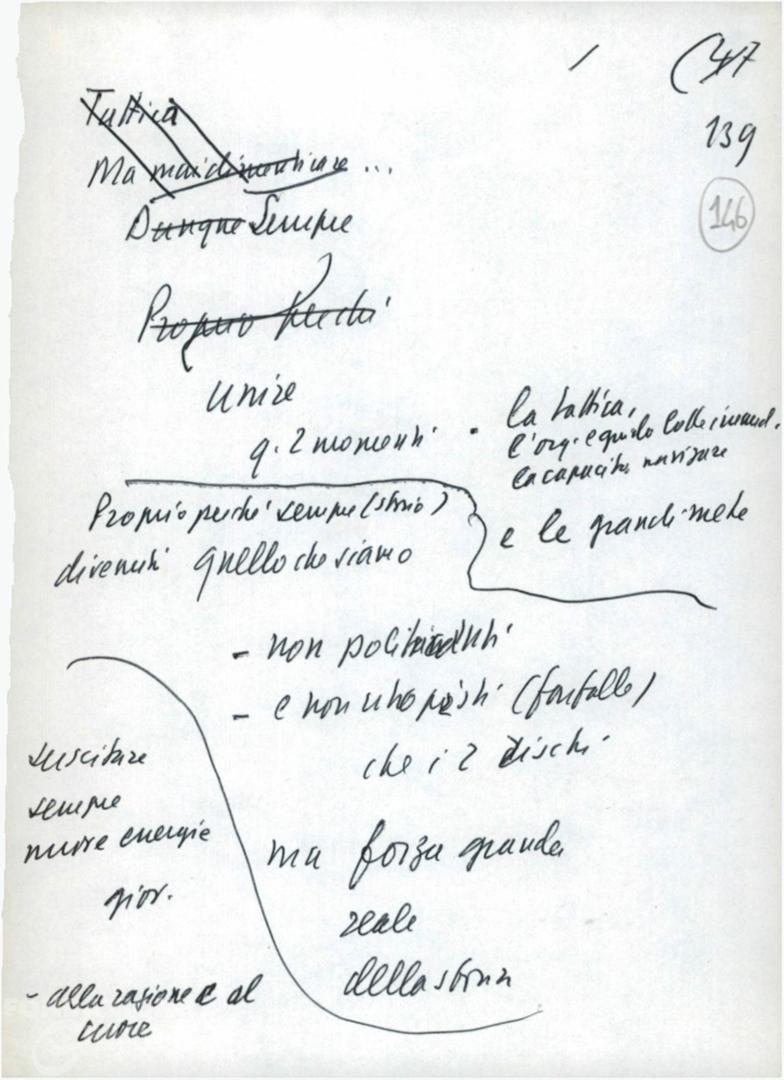 47
139
146
Tattica
Ma mai dimenticare ...
Dunque Sempre
Proprio perché
unire
q. 2 momenti
la tattica,
l'org. e guida lotte
la capacità navigare
e le grandi mete
Proprio perché sempre (storia)
divenuti quello che siamo
- non politicanti
- e non utopisti (farfalle)
che i 2 rischi
ma forza grande
reale
della storia
suscitare
sempre
nuove energie
giov.
- alla ragione e al
cuore